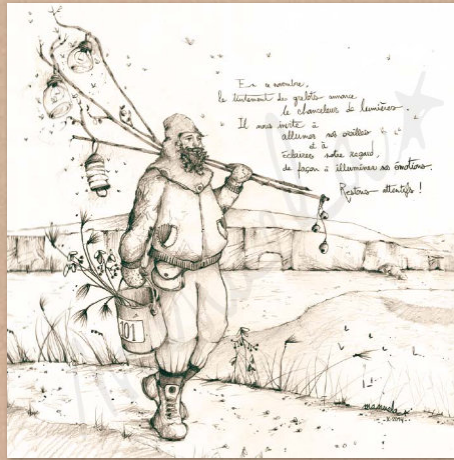 En novembre,
le tintement des grelots annonce
le chanceleur de lumières.
Il nous invite à
allumer nos oreilles
et à
éclairer notre regard,
de façon à illuminer nos émotions.
Restons attentifs !
101
2014